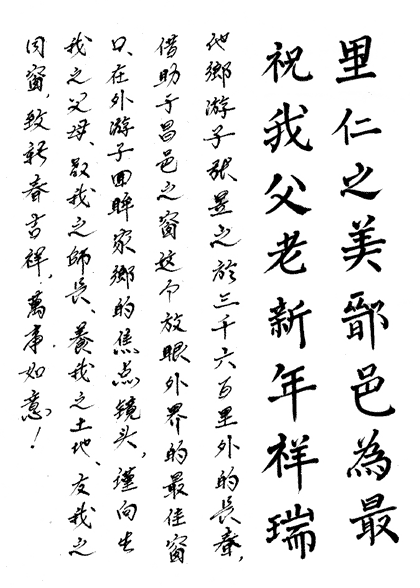 里仁之美鄑邑為最
祝我父老新年祥瑞
他鄉游子張昱之於三千六百里外的長春，
借助于昌邑之窗这个放眼外界的最佳窗
口、在外游子回眸家鄉的焦点镜头，謹向生
我之父母、教我之師長、養我之土地、友我之
同窗，致新春吉祥，萬事如意！